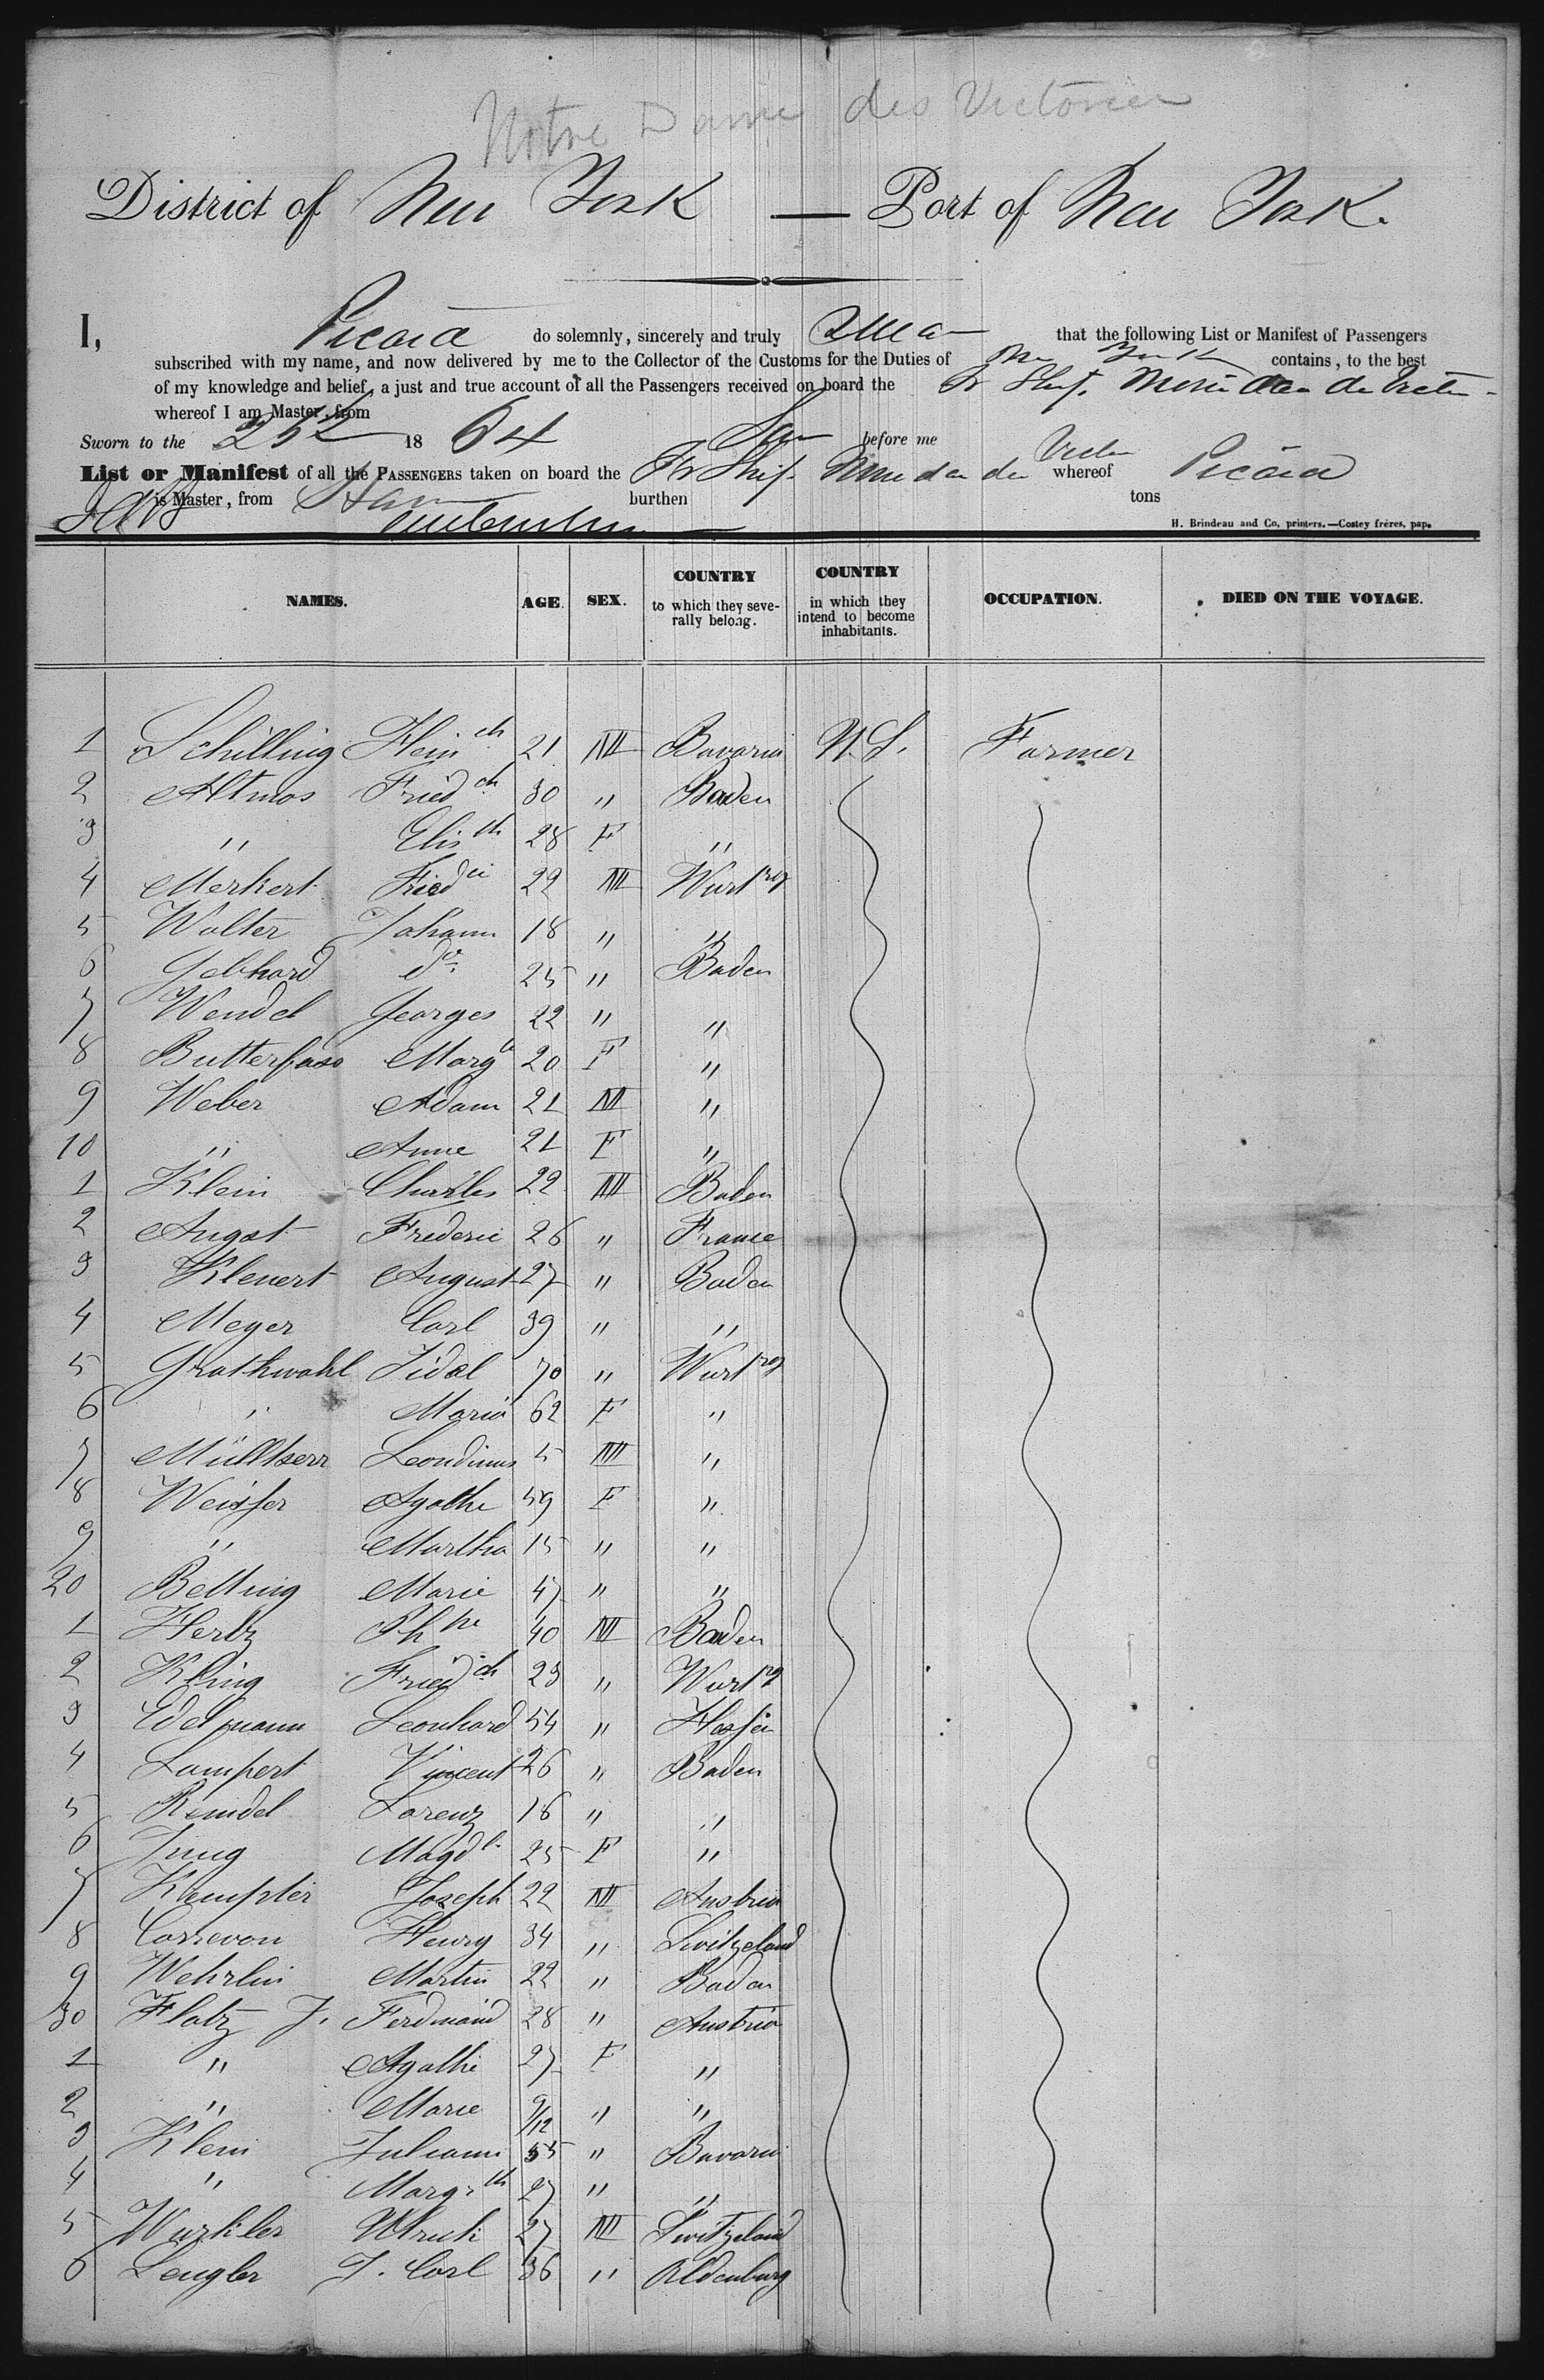 Notre Dame des Victories
District of New York — Port of New York.
I, Picard do solemnly, sincerely and truly that the following List or Manifest of Passengers
subscribed with my name, and now delivered by me to the Collector of the Customs for the Duties of New York contains, to the best
of my knowledge and belief, a just and true account of all the Passengers received on board the Fr Ship.
whereof I am Master, from
Sworn to the 25 1864 before me
List or Manifest of all the PASSENGERS taken on board the Fr Ship. whereof Picard
is Master, from Havre burthen tons
H. Brindeau and Co, printers.—Costey frères, pap.
NAMES. AGE. SEX. COUNTRY to which they severally belong. COUNTRY in which they intend to become inhabitants. OCCUPATION. DIED ON THE VOYAGE.
1 Schilling Hein ch 21 M Bavaria U.S. Farmer
2 Altmos Fried ch 30 " Baden
3 " Elis th 28 F "
4 Merkert Fried 22 M Wurt rg
5 Walter Johann 18 " "
6 Gebhard do. 25 " Baden
7 Wendel Georges 22 " "
8 Butterfass Marg 20 F "
9 Weber Adam 21 M "
10 " Anne 21 F "
1 Klein Charles 22 M Baden
2 Angst Frederic 26 " France
3 Klenert August 27 " Baden
4 Meyer Carl 39 " "
5 Grathwohl Fidel 70 " Wurt rg
6 " Maria 62 F "
7 Müllherr 5 M "
8 Weisser Agathe 59 F "
9 " Martha 15 " "
20 Belting Marie 47 " "
1 Hertz Ph pe 40 M Baden
2 Kling Fried ch 23 " Wurt rg
3 Edelmann Leonhard 54 " Hessen
4 Lampert Vincent 26 " Baden
5 Reindel Lorenz 16 " "
6 Jung Magd l. 25 F "
7 Kempter Joseph 22 M Austria
8 Correvon Henry 34 " Switzeland
9 Wehrlin Martin 22 " Baden
30 Flatz J. Ferdinand 28 " Austria
1 " Agathe 27 F "
2 " Marie 9/12 " "
3 Klein Juliann 55 " Bavaria
4 " Margr th 27 " "
5 Wurkler Ulrich 27 M Switzeland
6 Lengler J. Carl 36 " Oldenburg